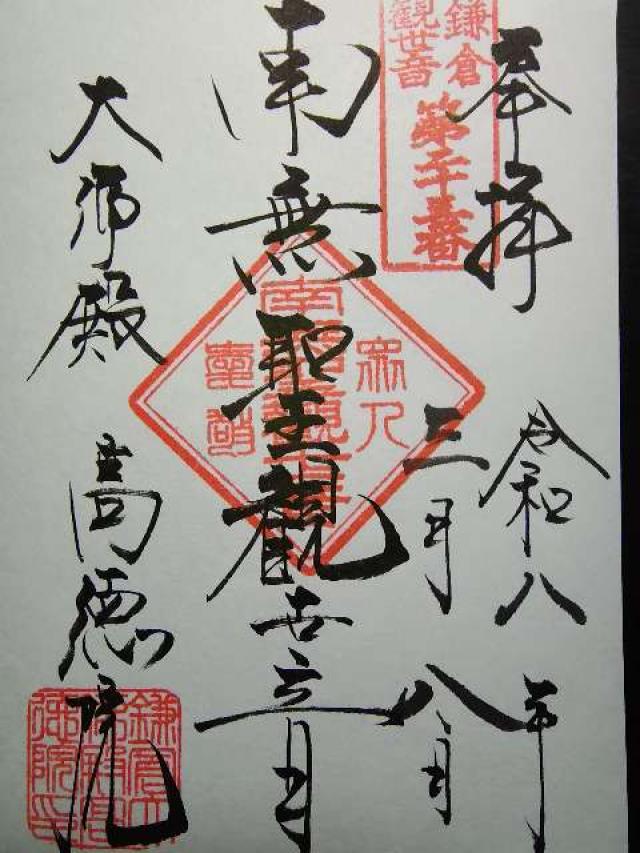 奉拝
鎌倉
観世音
第二十三番
令和八年
三月八日
南無聖観世音
衆人
愛敬
大佛殿 高徳院